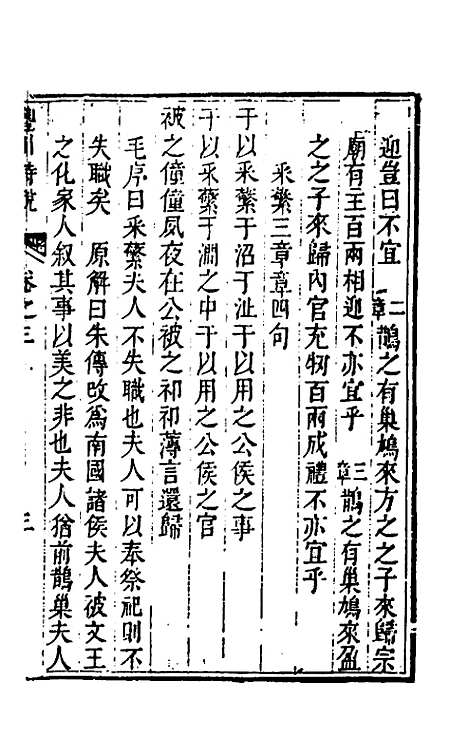 迎豈曰不宜 二章 鵲之有巢鳩來方之之子來歸宗
廟有主百兩相迎不亦宜乎 三章 鵲之有巢鳩來盈
之之子來歸內官充牣百兩成禮不亦宜乎
采蘩三章章四句
于以采蘩于沼于沚于以用之公侯之事
于以采蘩于澗之中于以用之公侯之宮
被之僮僮夙夜在公被之祁祁薄言還歸
毛序曰采蘩夫人不失職也夫人可以奉祭祀則不
失職矣 原解曰朱傳改爲南國諸侯夫人被文王
之化家人叙其事以美之非也夫人猶前鵲巢夫人
豐川詩說 卷之三 三